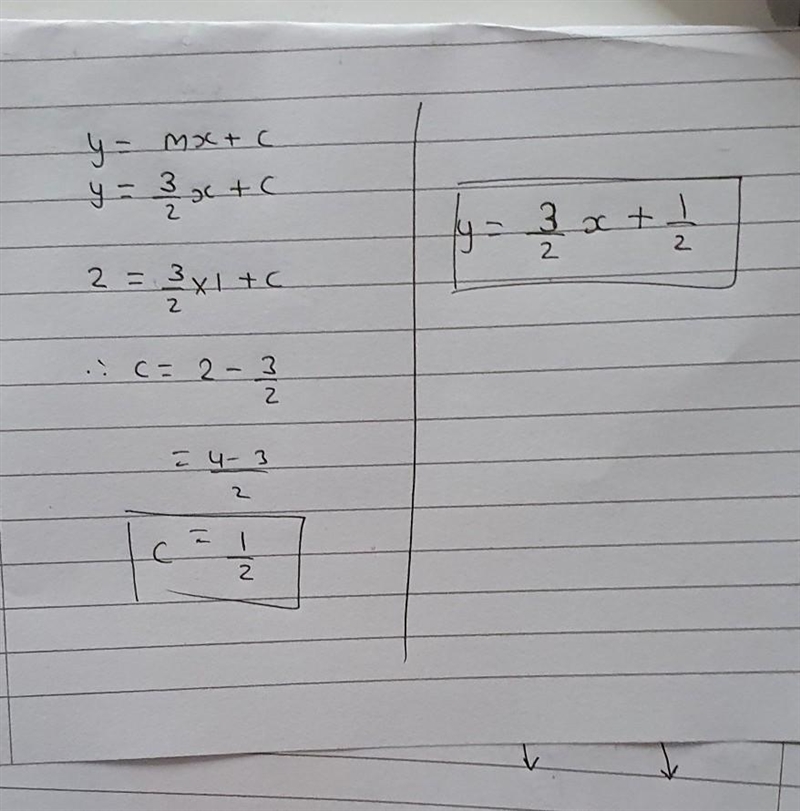 y = mx + c
y = 3/2 x + c
2 = 3/2 × 1 + c
∴ c = 2 - 3/2
= 4 - 3 / 2
c = 1/2
y = 3/2 x + 1/2